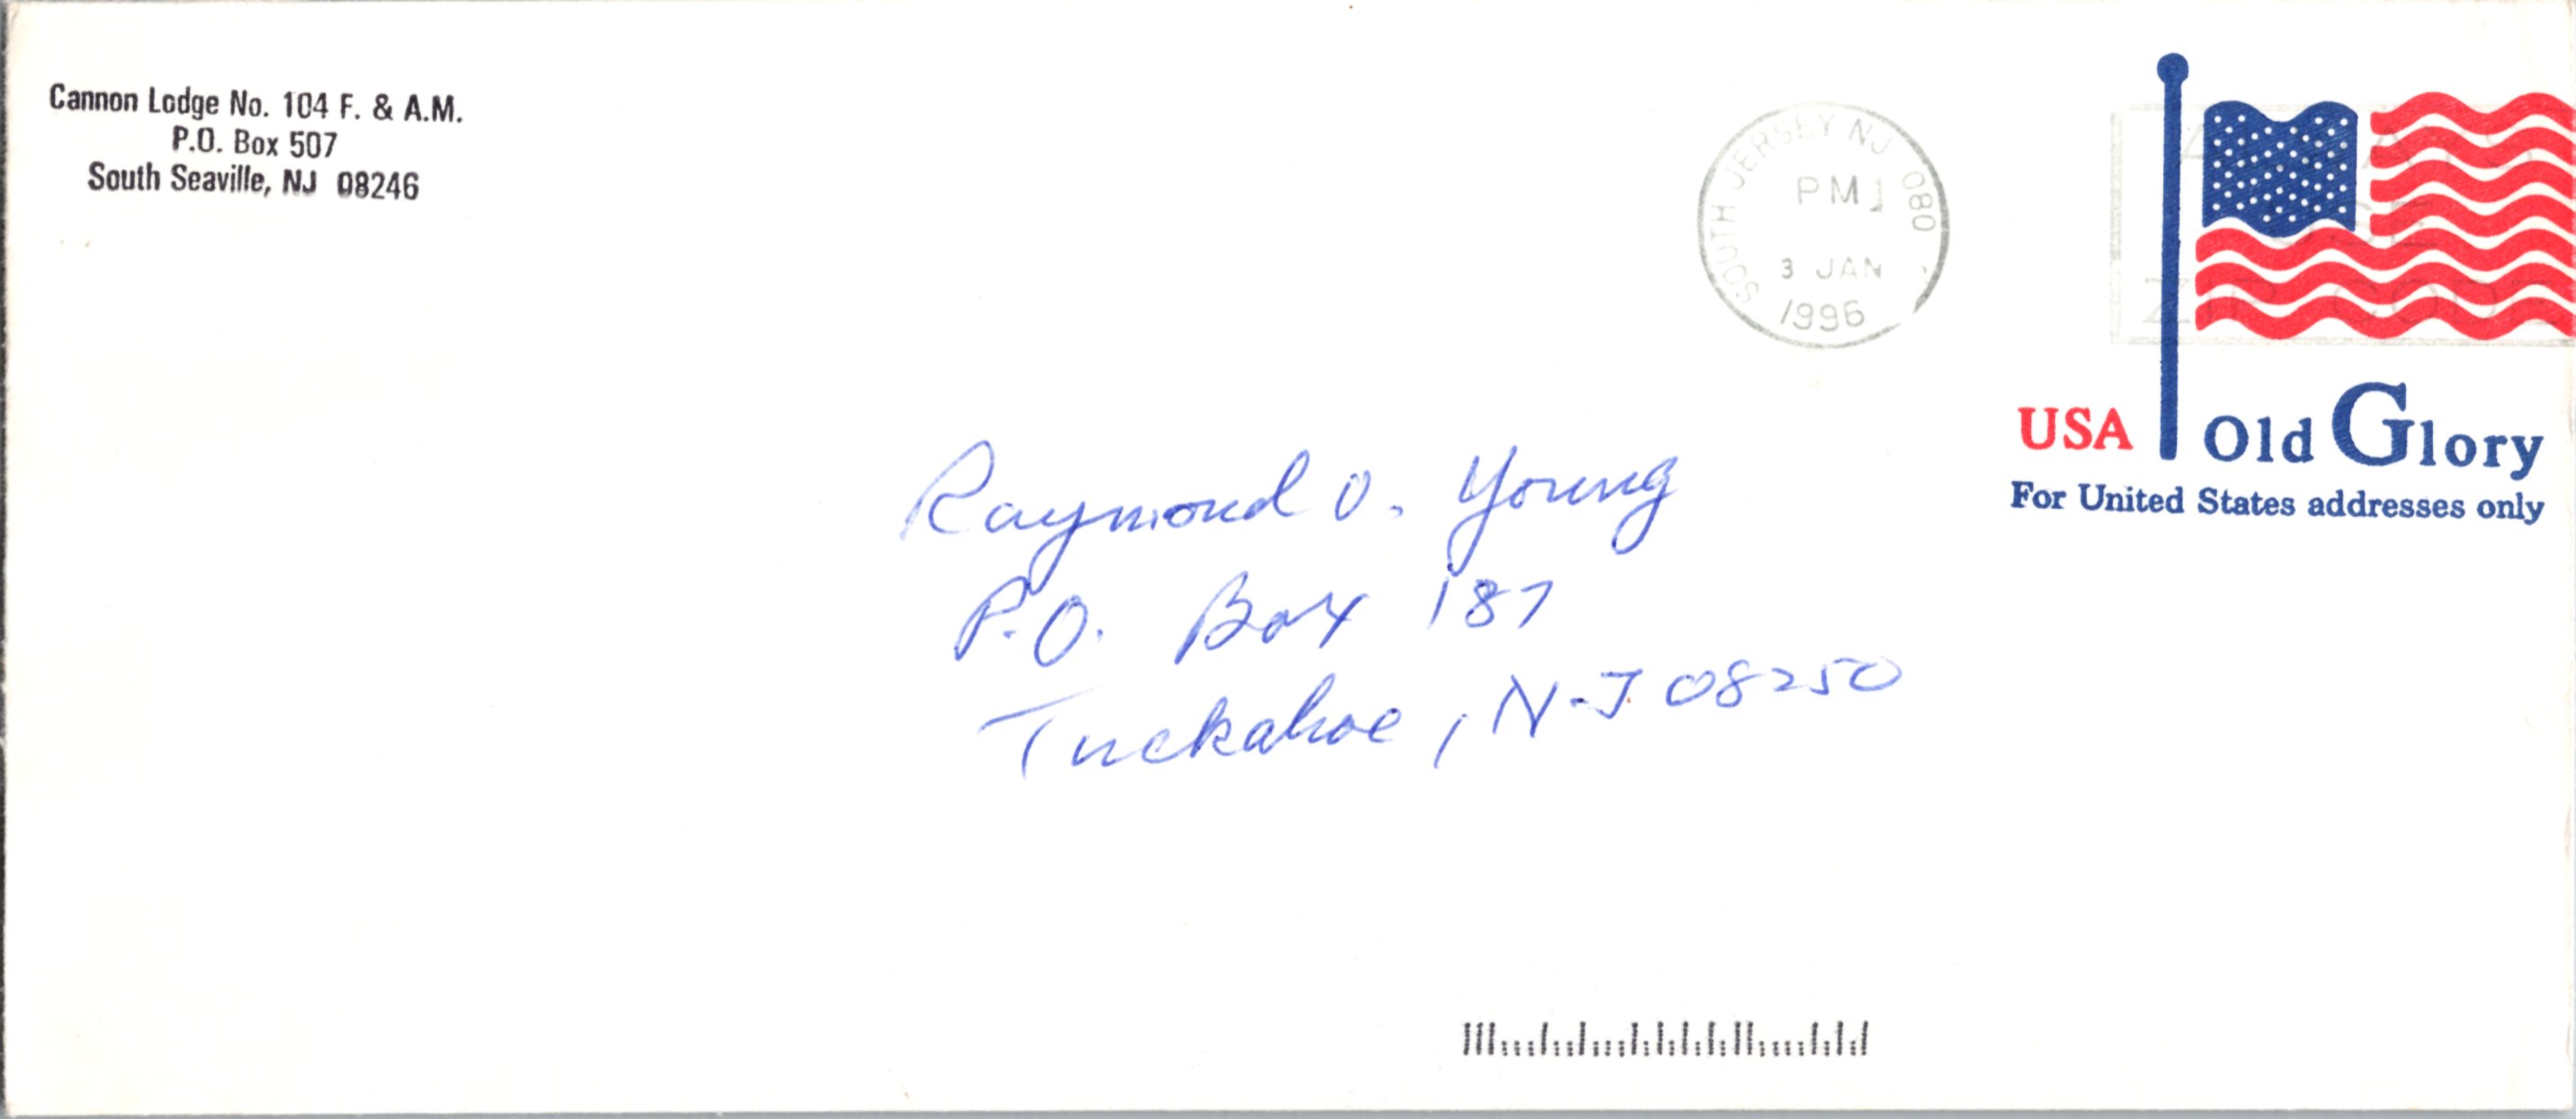 Cannon Lodge No. 104 F. & A.M.
P.O. Box 507
South Seaville, NJ 08246
SOUTH JERSEY NJ 080
PM
3 JAN
1996
USE
ZIP CODE
USA Old Glory
For United States addresses only
Raymond O. Young
P.O. Box 187
Tuckahoe, N-J 08250